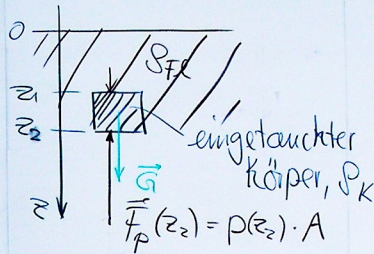 0
ρ_Fl
z₁
z₂
eingetauchter
Körper, ρ_K
G⃗
z
F⃗_p(z₂) = p(z₂) · A